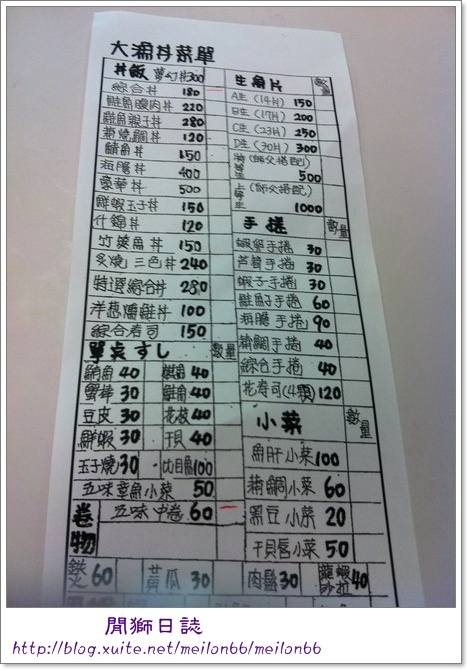 大漁丼菜單
丼飯 夢幻丼300
綜合丼 180
鮭魚腹肉丼 220
鮭魚親子丼 280
蒲燒鯛丼 120
鮪魚丼 150
海膽丼 400
豪華丼 500
鮮蝦玉子丼 150
什錦丼 120
竹筴魚丼 150
炙燒三色丼 240
特選綜合丼 280
洋蔥燻雞丼 100
綜合壽司 150
單點すし 數量
鮪魚 40 旗魚 40
蟹棒 30 鮭魚 40
豆皮 30 花枝 40
鮮蝦 30 干貝 40
玉子燒 30 比目魚 100
五味章魚小菜 50
五味中卷 60
卷物
鐵火 60 黃瓜 30 肉鬆 30 龍蝦沙拉 40
生魚片 數量
A生(14片) 150
B生(17片) 200
C生(23片) 250
D生(30片) 300
特等生(師父搭配) 500
上等生(師父搭配) 1000
手捲 數量
蝦卵手捲 30
芦筍手捲 30
蝦子手捲 30
鮭魚子手捲 60
海膽手捲 90
蒲鯛手捲 40
綜合手捲 40
花壽司(4顆) 120
小菜 數量
魚肝小菜 100
蒲鯛小菜 60
黑豆小菜 20
干貝唇小菜 50
閒獅日誌
http://blog.xuite.net/meilon66/meilon66